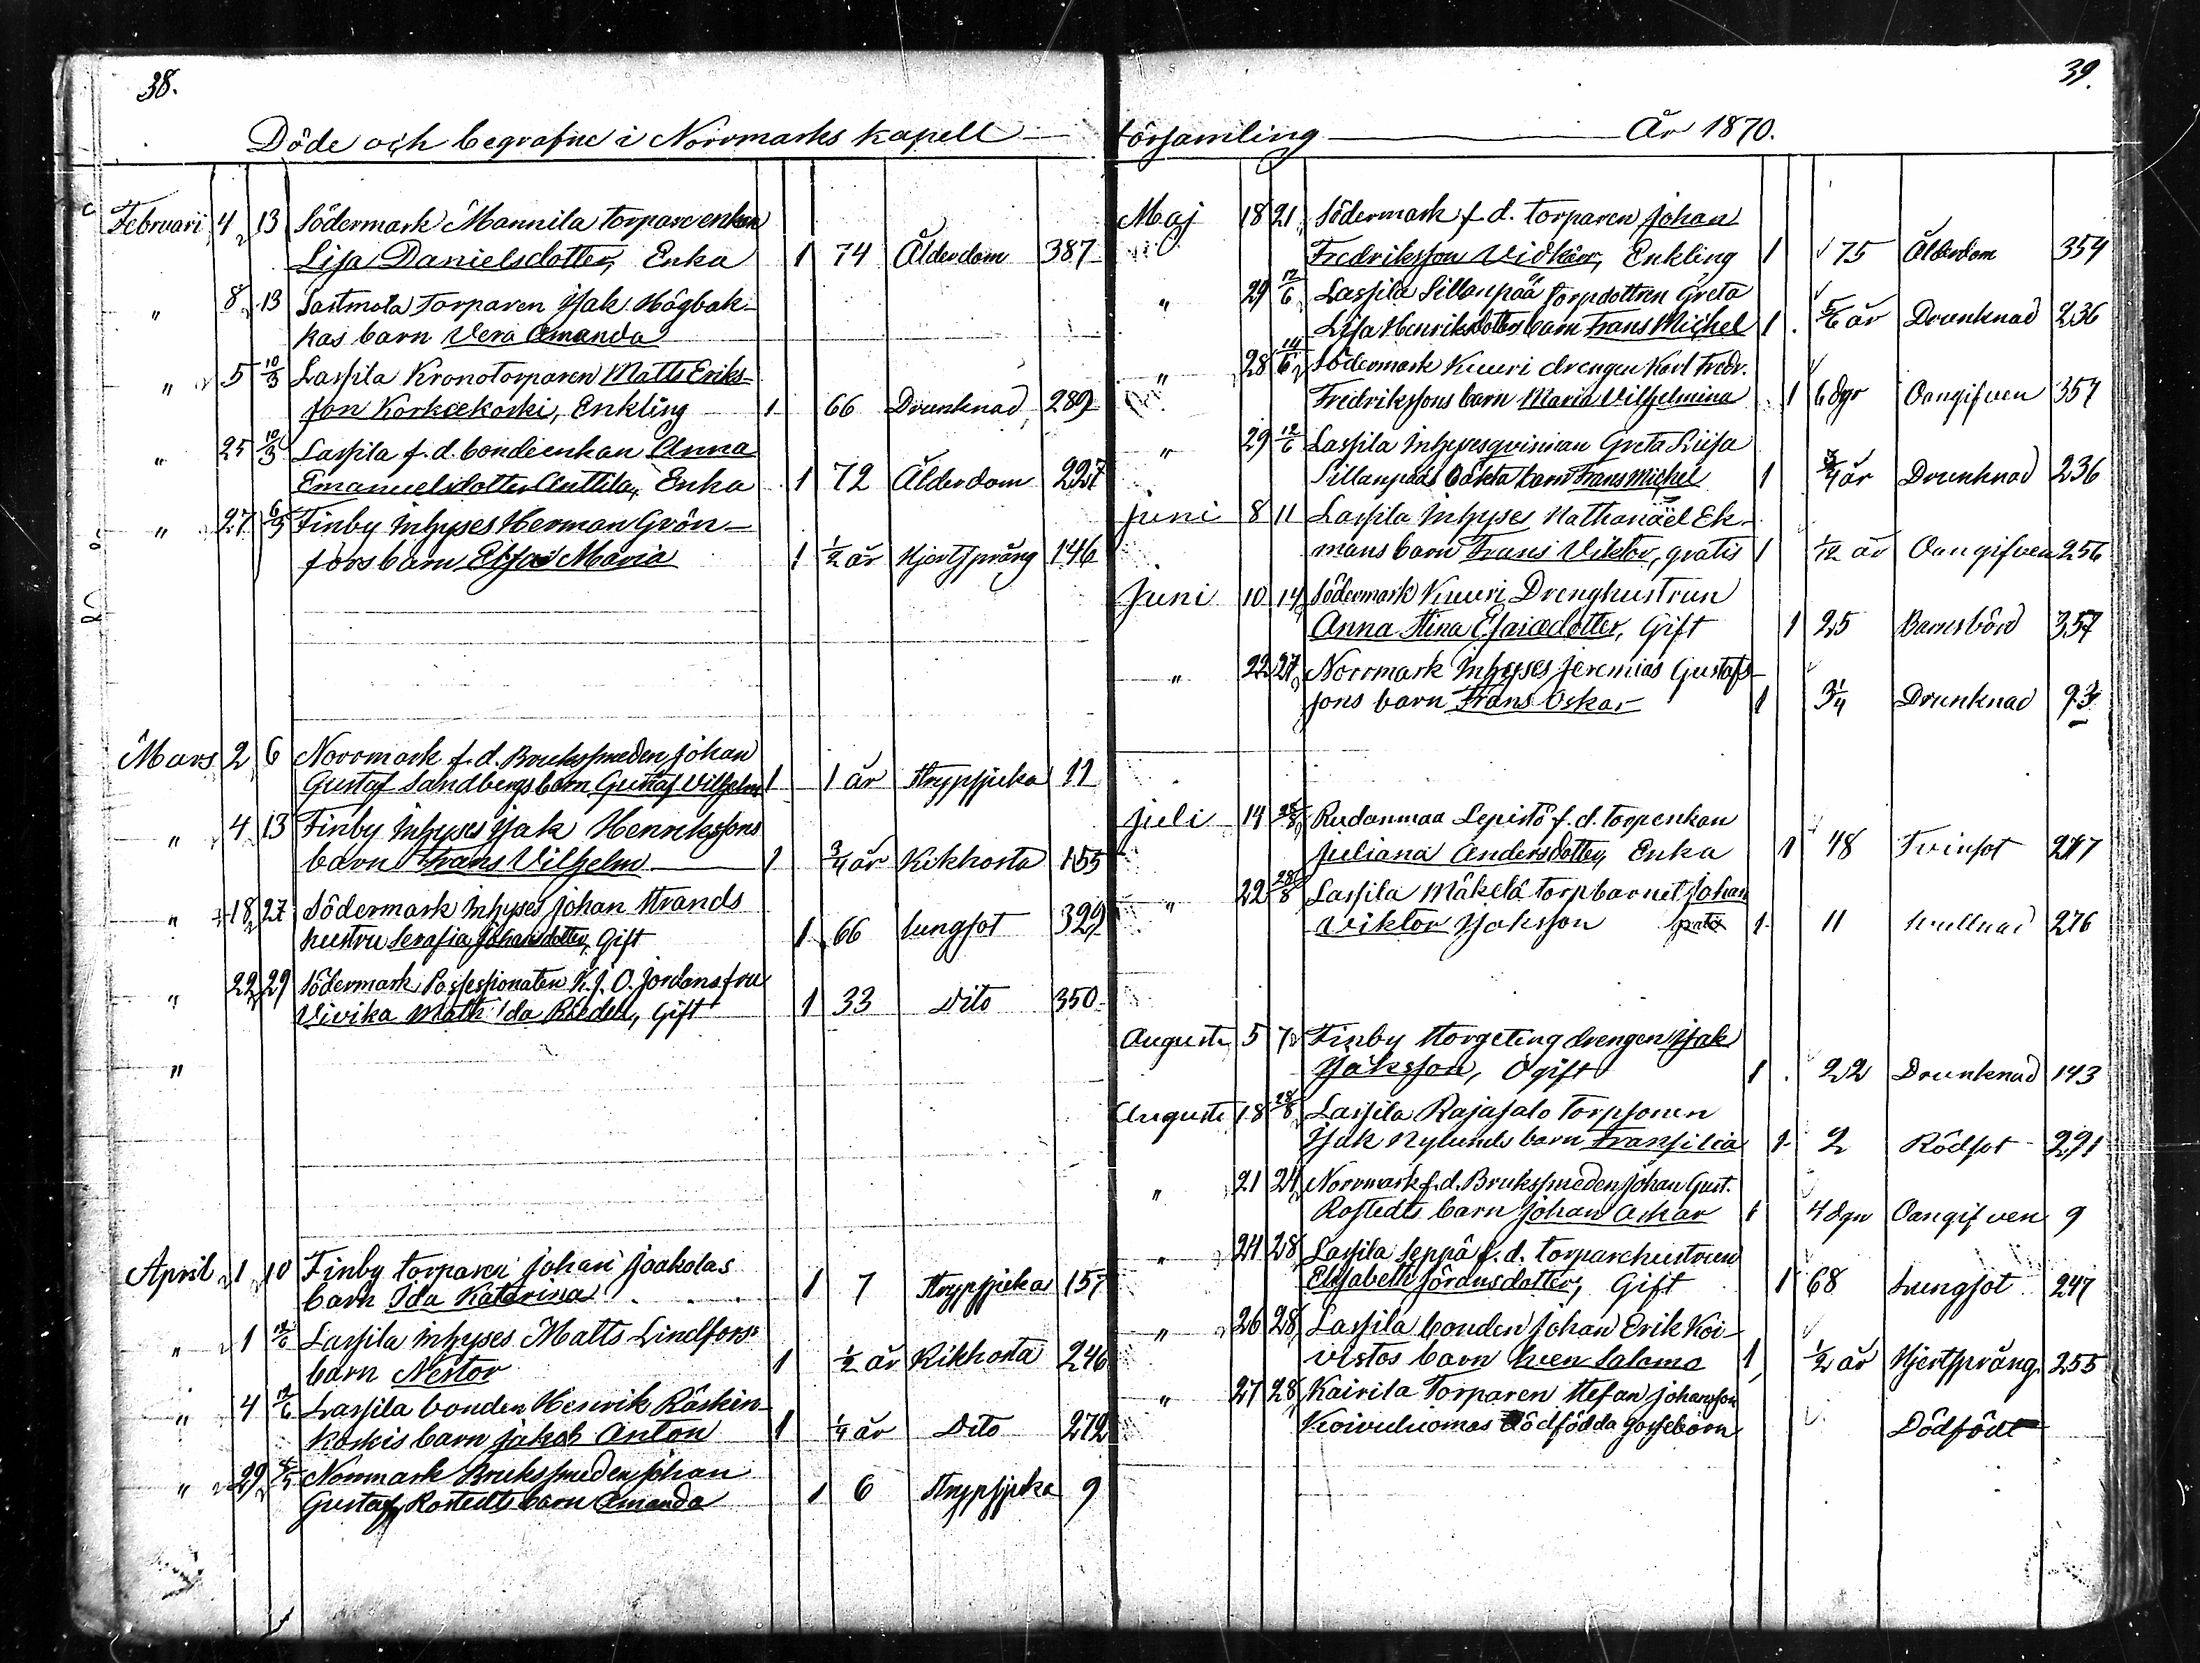 38.
Döde och begrafne i Norrmarks kapell
Februari 4 13 Södermark Mannila torpareenkan
Lisa Danielsdotter, Enka 1 74 Ålderdom 387
" 8 13 Sastmola Torparen Isak Högbak-
kas barn Vera Amanda
" 5 10/3 Lassila Kronotorparen Matts Eriks-
son Korkeekoski, Enkling 1 66 Drunknad 289
" 25 10/3 Lassila f. d. bondeenkan Anna
Emanuelsdotter Anttila, Enka 1 72 Ålderdom 227
" 27 6/3 Finby Inhyses Herman Grön-
fors barn Elisa Maria 1 1/2 år Hjertsprång 146
Mars 2 6 Norrmark f. d. Bruksmeden Johan
Gustaf Sandbergs barn Gustaf Vilhelm 1 1 år Strypsjuka 11
" 4 13 Finby Inhyses Isak Henrikssons
barn Frans Vilhelm 1 3/4 år Kikhosta 155
" 18 27 Södermark Inhyses Johan Strands
hustru Serafia Johansdotter, Gift 1 66 lungsot 329
" 22 29 Södermark Possessionaten K. J. O. Jordans fru
Vivika Math. Ida Gift 1 33 Dito 350
"
April 1 10 Finby torparen Johan Jaakolas
barn Ida Katarina 1 7 Strypsjuka 157
" 1 12/6 Lassila Inhyses Matts Lindfors's
barn Nestor 1 1/2 år Kikhosta 246
" 4 12/6 Lassila bonden Henrik Räskin-
koskis barn Jakob Anton 1 1/4 år Dito 272
" 29 Norrmark Bruksmeden Johan
Gustaf Rostedts barn Amanda 1 6 Strypsjuka 9
39.
församling År 1870.
Maj 18 21 Södermark f. d. torparen Johan
Fredriksson Vidkärr, Enkling 1 75 Ålderdom 354
" 29 12/6 Lassila Sillanpää torpdottren Greta
Lisa Henriksdotters barn Frans Michel 1 5/6 år Drunknad 236
" 28 14/6 Södermark Kuuri drengen Karl Fredr.
Fredrikssons barn Maria Vilhelmina 1 6 dgr Oangifven 357
" 29 12/6 Lassila Inhysesqvinnan Greta Liisa
Sillanpääs oäkta barn Frans Michel 1 3/4 år Drunknad 236
Juni 8 11 Lassila Inhyses Nathanaël Ek-
mans barn Frans Viktor, gratis 1 1/12 år Oangifven 256
Juni 10 14 Södermark Kuuri Drenghustrun
Anna Stina Esaiædotter, Gift 1 25 Barnsbörd 357
" 22 27 Norrmark Inhyses Jeremias Gustafs-
sons barn Frans Oskar 1 3 1/4 Drunknad 93
Juli 14 28/8 Rudanmaa Lepistö f. d. torpenkan
Juliana Andersdotter, Enka 1 48 Tvinsot 247
" 22 28/8 Lassila Mäkelä torpbarnet Johan
Viktor Isaksson 1 11 276
Augusti 5 7 Finby Storgeting drengen Isak
Isaksson, Ogift 1 22 Drunknad 143
Augusti 18 28/8 Lassila Rajasalo Torpsonen
Isak Nylunds barn Fransilia 1 2 Rödsot 291
" 21 24 Norrmark f. d. Bruksmeden Johan Gust.
Rostedts barn Johan Oskar 1 4 dgr Oangifven 9
" 24 28 Lassila Seppä f. d. torparehustrun
Elisabeth Göransdotter, Gift 1 68 Lungsot 247
" 26 28 Lassila bonden Johan Erik Koi-
vistos barn Sven Salomo 1 1/2 år Hjertsprång 255
" 27 28 Kairila Torparen Stefan Johansson
Koivuluomas dödfödda gosse barn Dödfödt